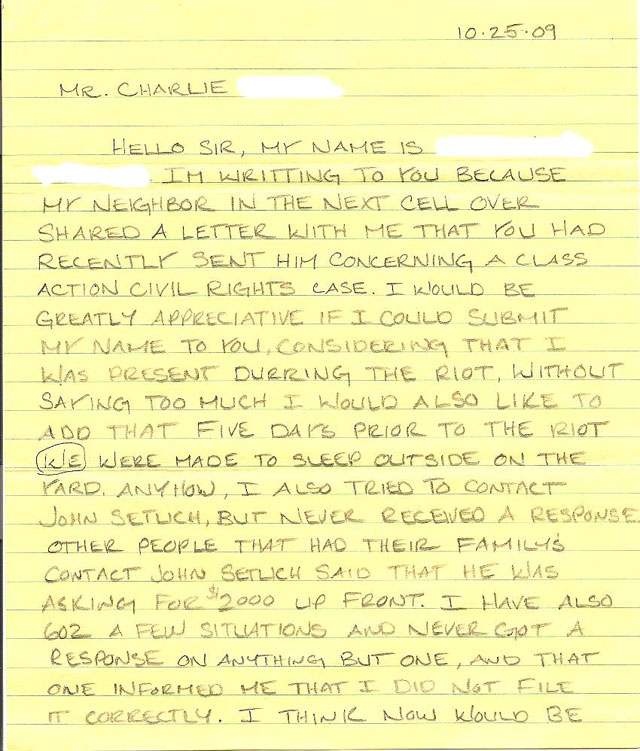 10·25·09
MR. CHARLIE
HELLO SIR, MY NAME IS
. IM WRITTING TO YOU BECAUSE
MY NEIGHBOR IN THE NEXT CELL OVER
SHARED A LETTER WITH ME THAT YOU HAD
RECENTLY SENT HIM CONCERNING A CLASS
ACTION CIVIL RIGHTS CASE. I WOULD BE
GREATLY APPRECIATIVE IF I COULD SUBMIT
MY NAME TO YOU, CONSIDERING THAT I
WAS PRESENT DURRING THE RIOT, WITHOUT
SAYING TOO MUCH I WOULD ALSO LIKE TO
ADD THAT FIVE DAYS PRIOR TO THE RIOT
WE WERE MADE TO SLEEP OUTSIDE ON THE
YARD. ANYHOW, I ALSO TRIED TO CONTACT
JOHN SETLICH, BUT NEVER RECEIVED A RESPONSE.
OTHER PEOPLE THAT HAD THEIR FAMILY'S
CONTACT JOHN SETLICH SAID THAT HE WAS
ASKING FOR $2000 UP FRONT. I HAVE ALSO
602 A FEW SITUATIONS AND NEVER GOT A
RESPONSE ON ANYTHING BUT ONE, AND THAT
ONE INFORMED ME THAT I DID NOT FILE
IT CORRECTLY. I THINK NOW WOULD BE